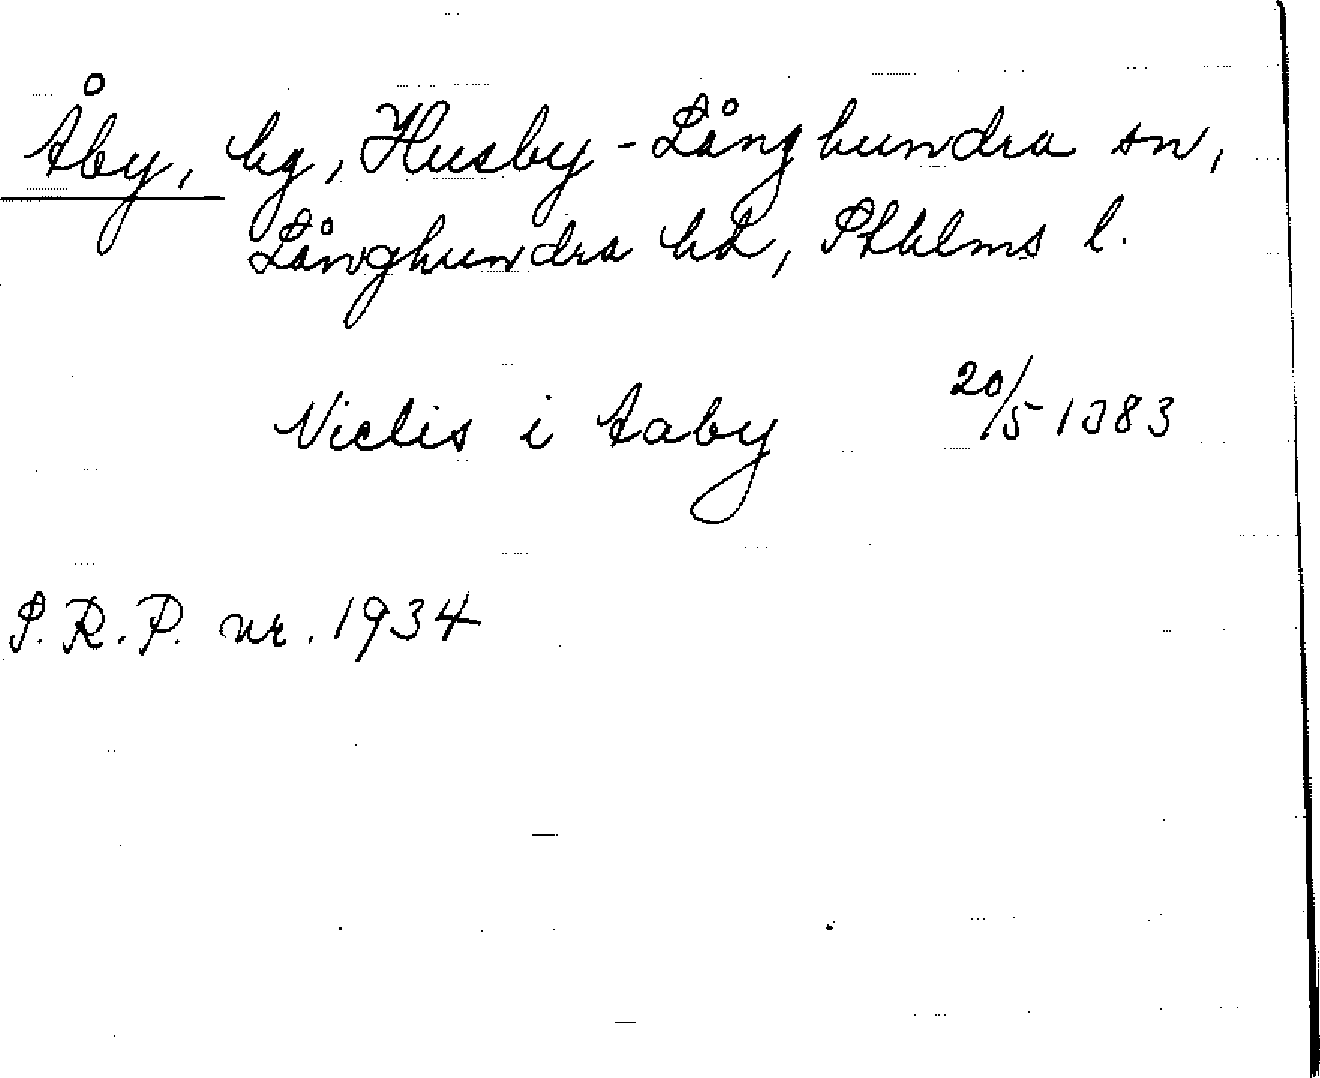 Åby, by, Husby-Långhundra sn,
Långhundra hd, Sthlms l.
Niclis i Aaby 20/5 1383
S.R.P. nr. 1934